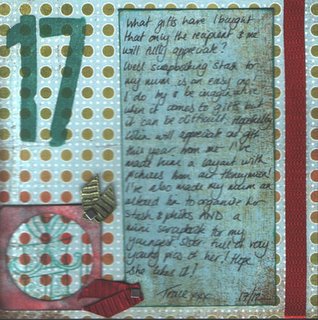 17
What gifts have I bought
that only the recipient & me
will fully appreciate?
Well scrapbooking stash for
my mum is an easy one
I do try & be imaginative
when it comes to gifts but
it can be difficult. Hopefully
will appreciate his gift
this year from me I've
made him a layout with
pictures from our Honeymoon!
I've also made my mum an
altered box to organise her
stash & photos AND a
mini scrapbook for my
youngest sister full of very
young pics of her! Hope
she likes it!
Tracie xxx 17/12